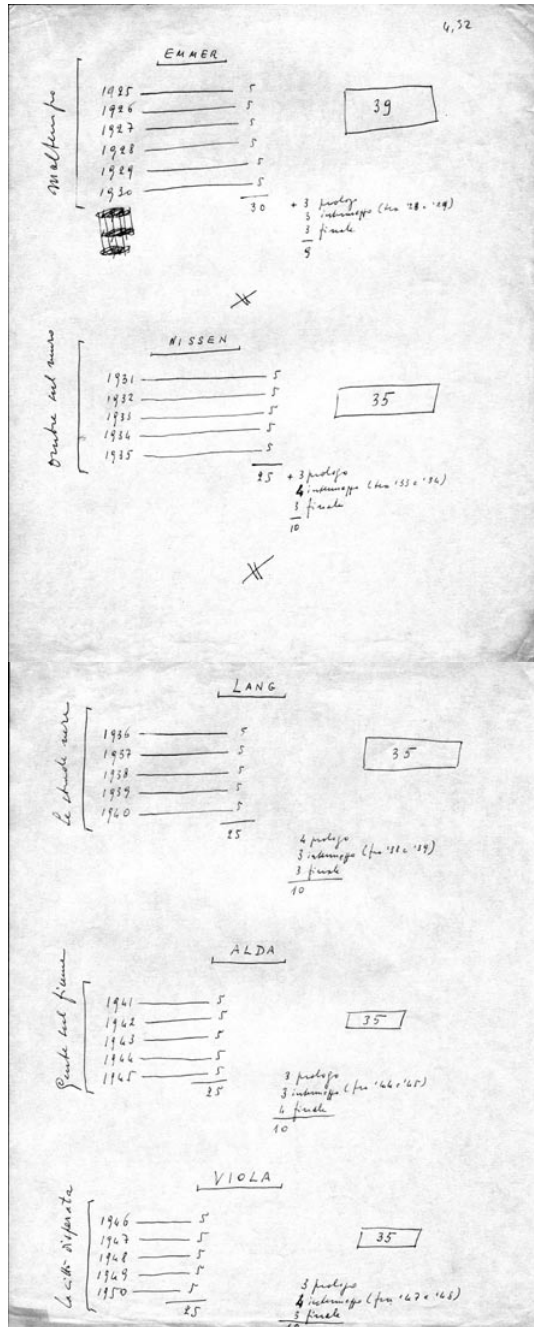 4,52
EMMER
Maltempo
39
1925 5
1926 5
1927 5
1928 5
1929 5
1930 5
30
+ 3 prologo
3 intermezzo (tra '28 e '29)
3 finale
9
NISSEN
Ombre sul muro
35
1931 5
1932 5
1933 5
1934 5
1935 5
25
+ 3 prologo
4 intermezzo (tra '33 e '34)
3 finale
10
LANG
Le strade nere
35
1936 5
1937 5
1938 5
1939 5
1940 5
25
4 prologo
3 intermezzo (fra '38 e '39)
3 finale
10
ALDA
Gente sul fiume
35
1941 5
1942 5
1943 5
1944 5
1945 5
25
3 prologo
3 intermezzo (fra '44 e '45)
4 finale
10
VIOLA
La città disperata
35
1946 5
1947 5
1948 5
1949 5
1950 5
25
3 prologo
4 intermezzo (fra '47 e '48)
3 finale
10